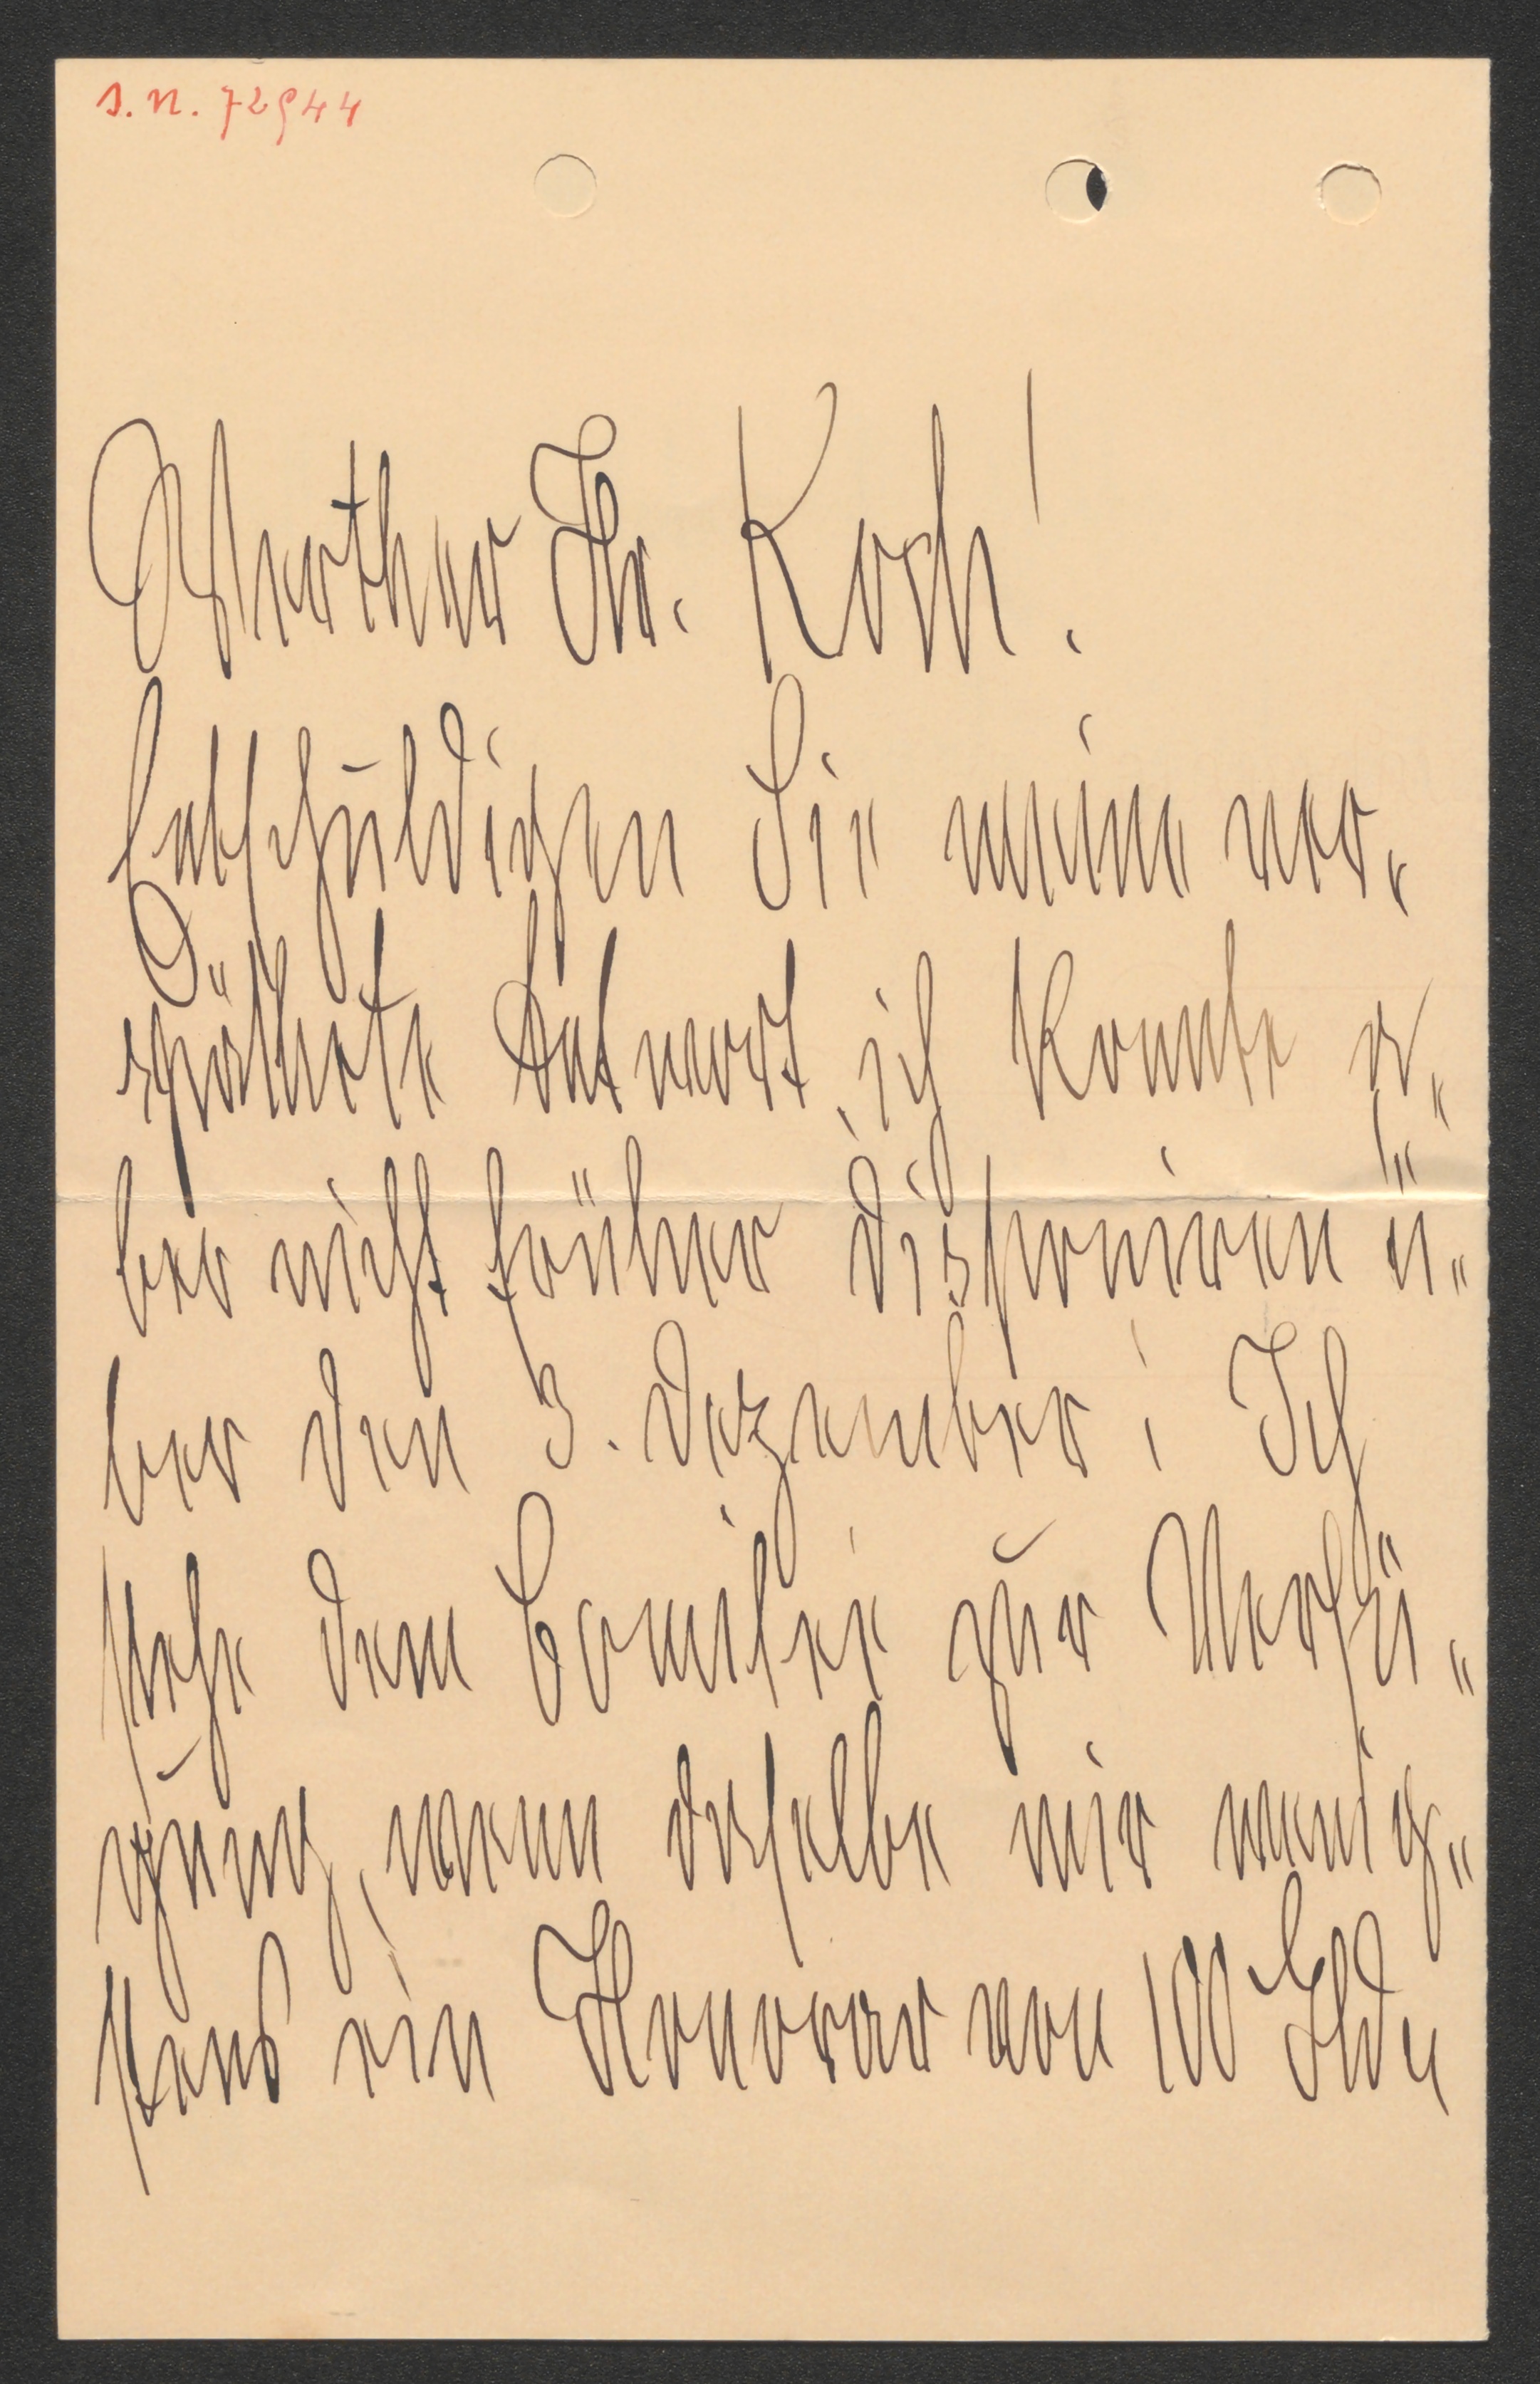 I. N. 72944
Werther Hr. Koch!
Entschuldigen Sie meine ver-
spätete Antwort, ich konnte a-
ber nicht früher disponiren ü-
ber den 3. Dezember! Ich
stehe dem Comitée zur Verfü-
gung, wenn dasselbe mir wenig-
stens ein Honorar von 100 Gldn